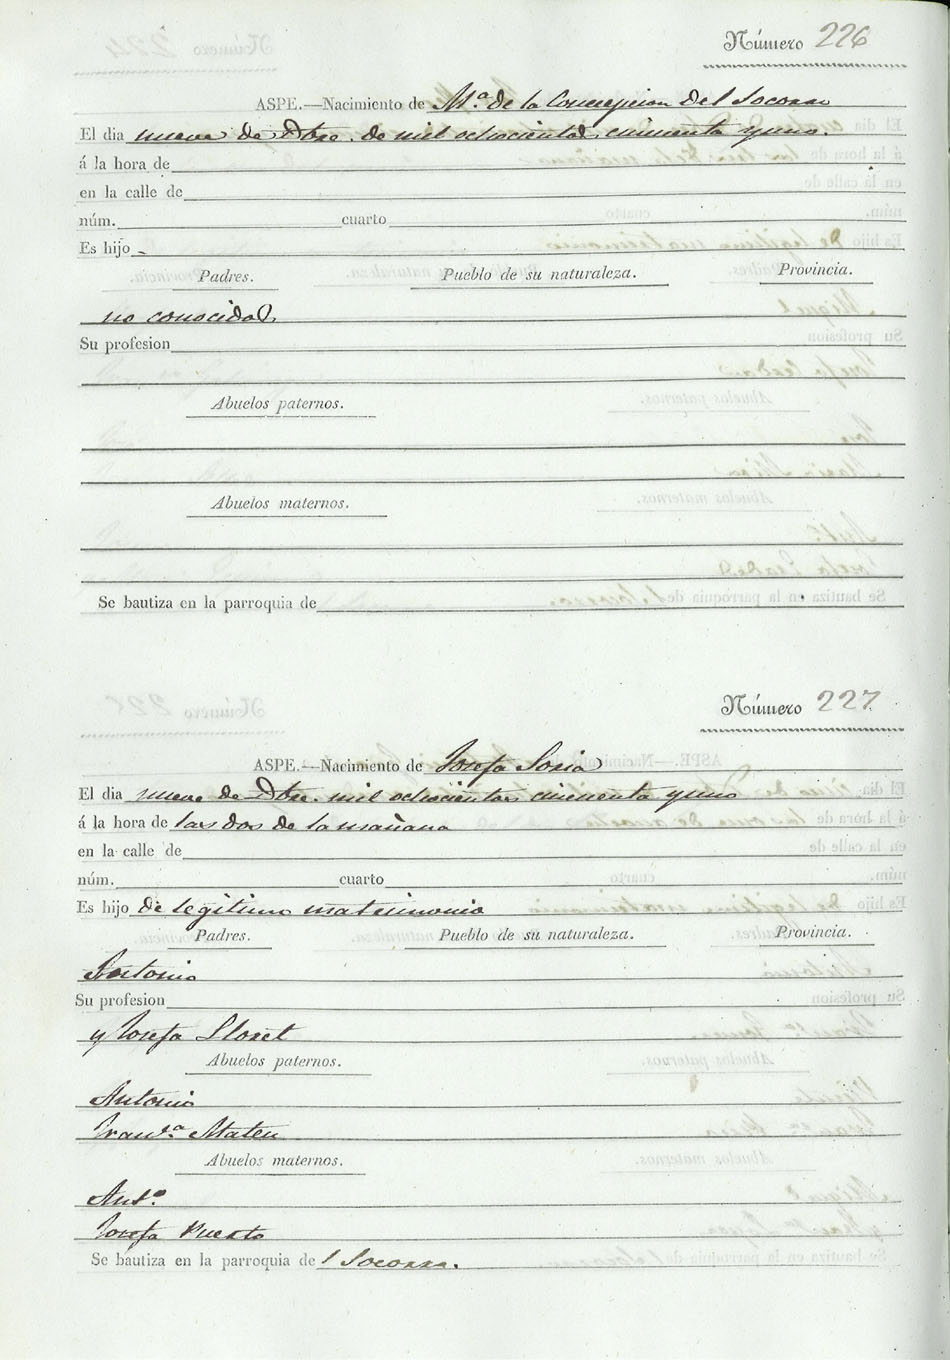 Número 226
ASPE.—Nacimiento de M.ª de la Concepcion del Socorro
El dia nueve de Dbre. de mil ochocientos cincuenta y uno.
á la hora de
en la calle de
núm. cuarto
Es hijo
Padres. Pueblo de su naturaleza. Provincia.
no conocidos
Su profesion
Abuelos paternos.
Abuelos maternos.
Se bautiza en la parroquia de
Número 227
ASPE.—Nacimiento de Josefa Soria
El dia nueve de Dbre. mil ochocientos cincuenta y uno
á la hora de las dos de la mañana
en la calle de
núm. cuarto
Es hijo de legitimo matrimonio
Padres. Pueblo de su naturaleza. Provincia.
Antonio
Su profesion
y Josefa Lloret
Abuelos paternos.
Antonio
Fran.ca Mateu
Abuelos maternos.
Ant.º
Josefa Puerto
Se bautiza en la parroquia de l Socorro.